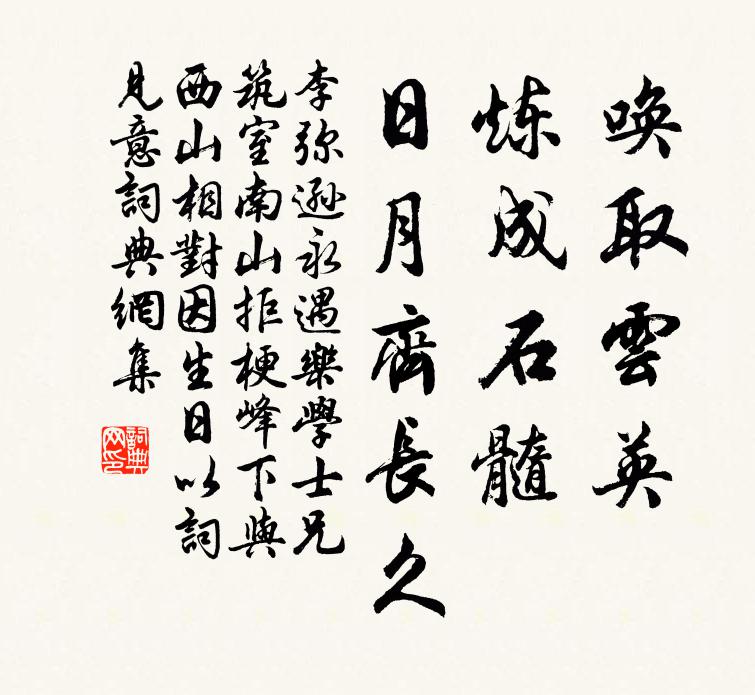 唤取雲英
炼成石髓
日月齊長久
李弥遜永遇樂學士兄
筑室南山拒梗峰下與
西山相對因生日以詞
見意詞典網集
詞典
网印